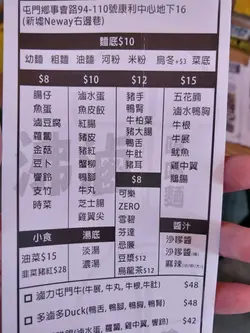 屯門鄉事會路94-110號康利中心地下16
(新墟Neway右邊巷)
麵底$10
幼麵 粗麵 油麵 河粉 米粉 烏冬+$3 菜底
$8 $10 $12 $15
腸仔
魚蛋
滷豆腐
蘿蔔
金菇
豆卜
響鈴
支竹
時菜
滷水蛋
魚皮餃
紅腸
豬皮
豬紅
蟹柳
牛丸
芝士腸
雞翼尖
豬手
鴨腎
牛柏葉
豬大腸
鴨舌
牛肚
豬耳
五花腩
滷水鴨胸
牛根
牛展
魷魚
雞中翼
鵝腸
$8
可樂
ZERO
雪碧
芬達
忌廉
豆漿$12
烏龍茶$12
小食
油菜$15
韭菜豬紅$28
湯底
淡湯
濃湯
醬汁
沙嗲醬
沙嗲醬
麻辣
滷力屯門牛(牛展, 牛丸, 牛肚, 牛根) $48
多滷多Duck(鴨舌, 鴨腳, 鴨胸, 鴨腎) $48
$42